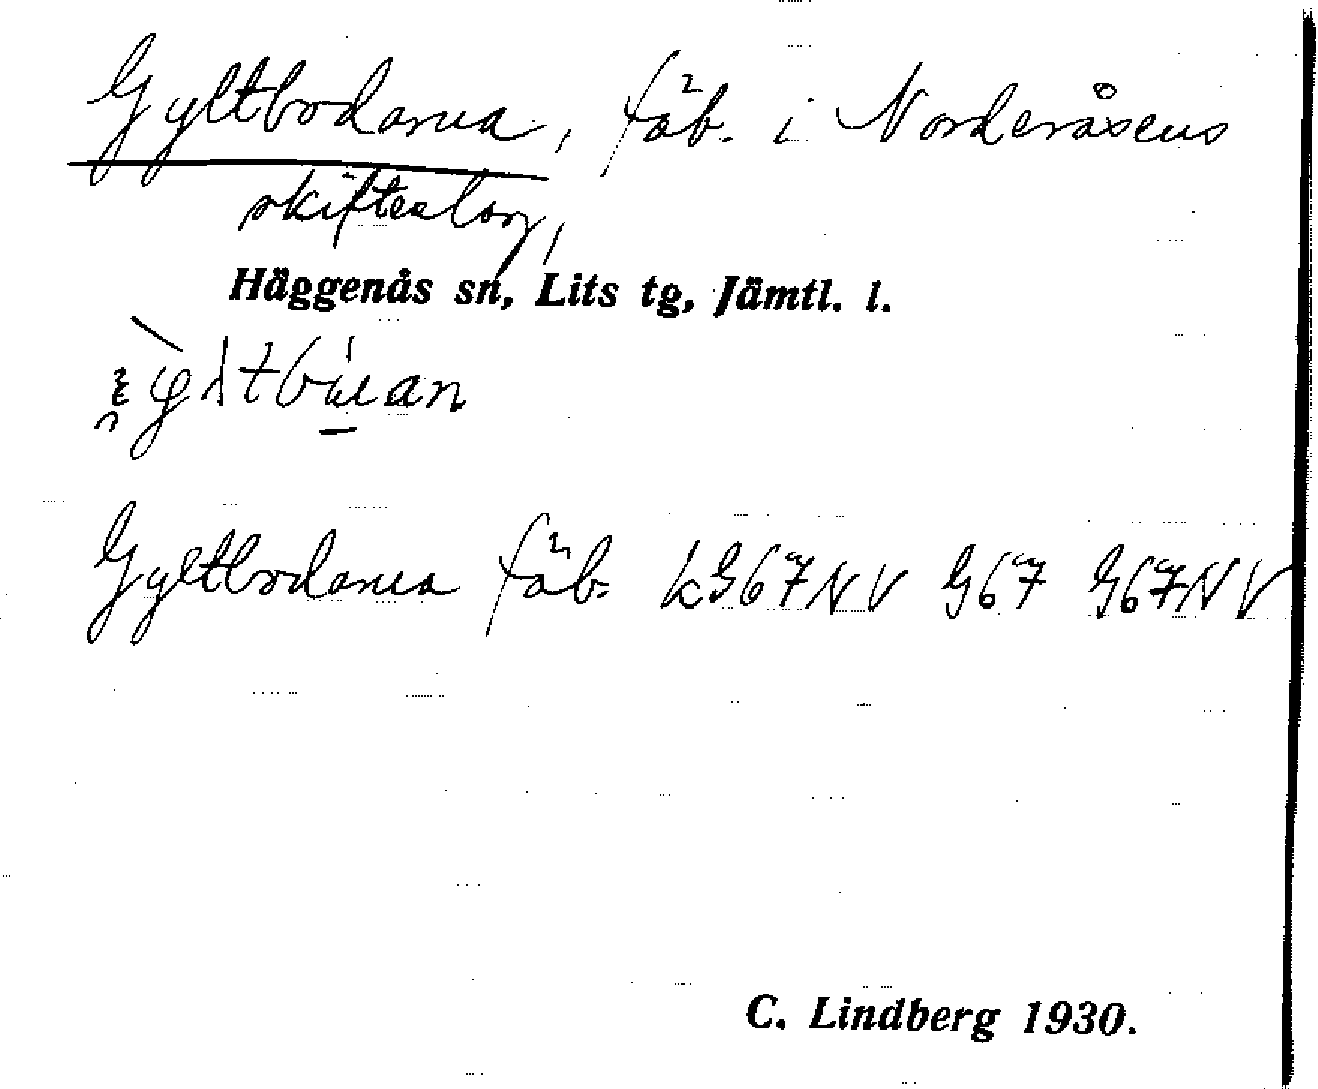 Gyltbodarna, fäb. i Norderåsens
skifteslag,
Häggenås sn, Lits tg, Jämtl. l.
Gyltbodarna fäb. k G67NV G67 G67NV
C. Lindberg 1930.